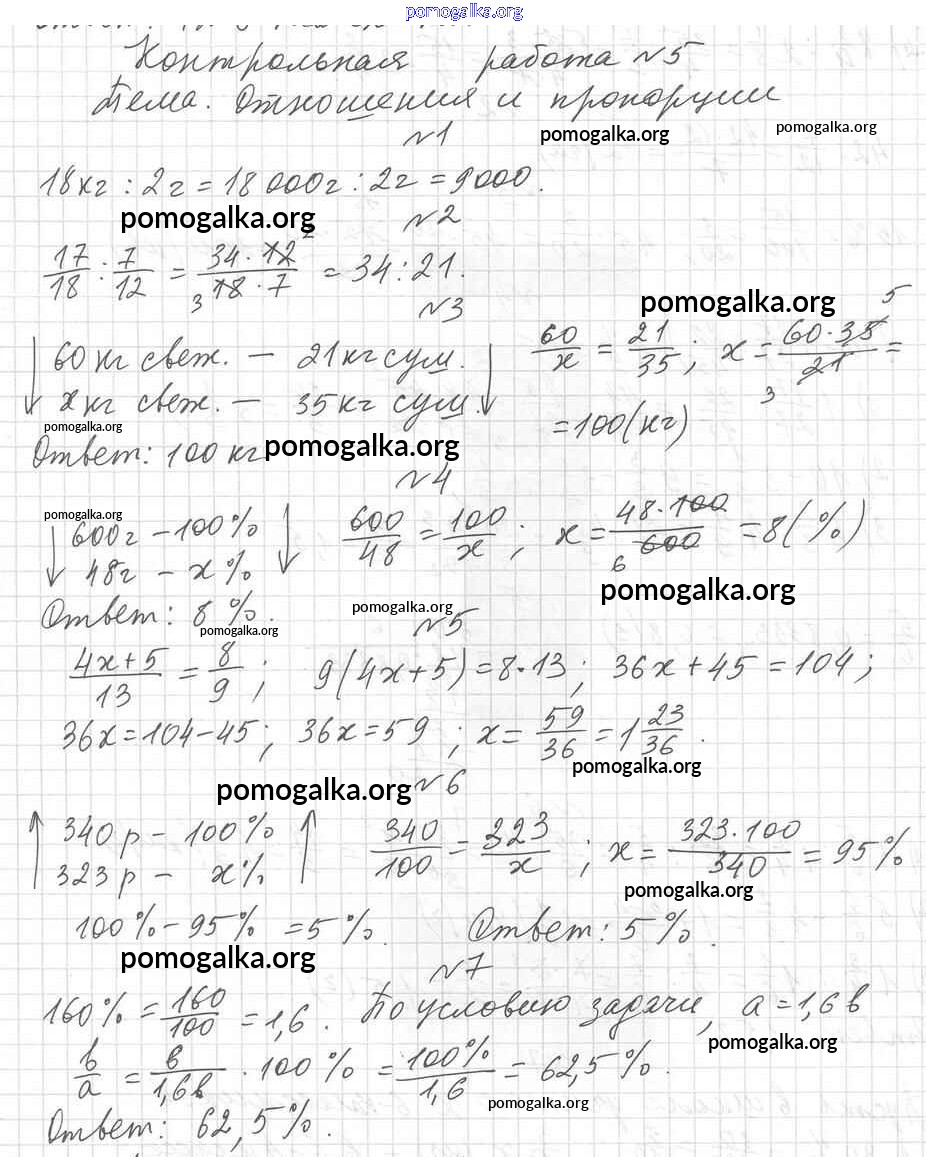 pomogalka.org
Контрольная работа №5
Тема. Отношения и пропорции
№1
pomogalka.org
pomogalka.org
18кг : 2г = 18 000г : 2г = 9000.
pomogalka.org
№2
17/18 : 7/12 = 34 · 12 2 / 3 18 · 7 = 34 : 21.
№3
pomogalka.org
↓ 60 кг свеж. — 21 кг суш. ↓ 60/x = 21/35; x = 60 · 35 5 / 21 3 =
x кг свеж. — 35 кг суш.
= 100 (кг)
pomogalka.org
Ответ: 100 кг
pomogalka.org
№4
pomogalka.org
↓ 600г – 100% ↓ 600/48 = 100/x; x = 48 · 100 / 6 600 = 8 (%)
48г – x%
pomogalka.org
Ответ: 8%.
pomogalka.org
pomogalka.org
№5
4x+5/13 = 8/9; 9(4x+5) = 8 · 13; 36x + 45 = 104;
36x = 104 – 45; 36x = 59; x = 59/36 = 1 23/36.
pomogalka.org
pomogalka.org
№6
↑ 340 р – 100% ↑ 340/100 = 323/x; x = 323 · 100/340 = 95%
323 р – x%
pomogalka.org
100% – 95% = 5%. Ответ: 5%.
pomogalka.org
№7
160% = 160/100 = 1,6. По условию задачи, a = 1,6 в
pomogalka.org
в/a = в/1,6в · 100% = 100%/1,6 = 62,5%.
pomogalka.org
Ответ: 62,5%.